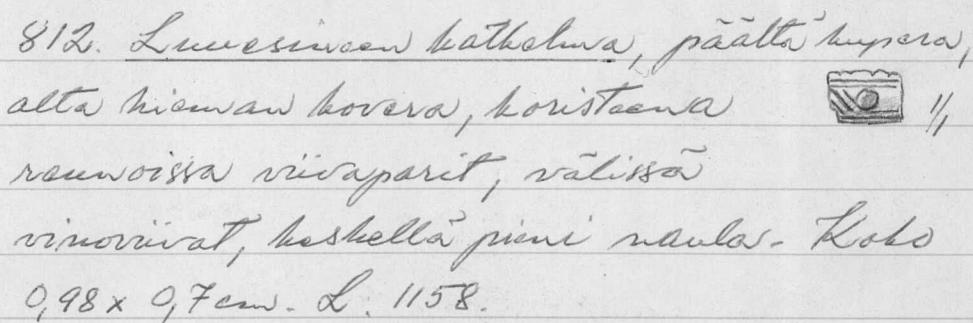 812. Luuesineen katkelma, päältä kupera,
alta hieman kovera, koristeena 1/1
reunoissa viivaparit, välissä
vinoviivat, keskellä pieni naula. Koko
0,98 x 0,7 cm. L. 1158.